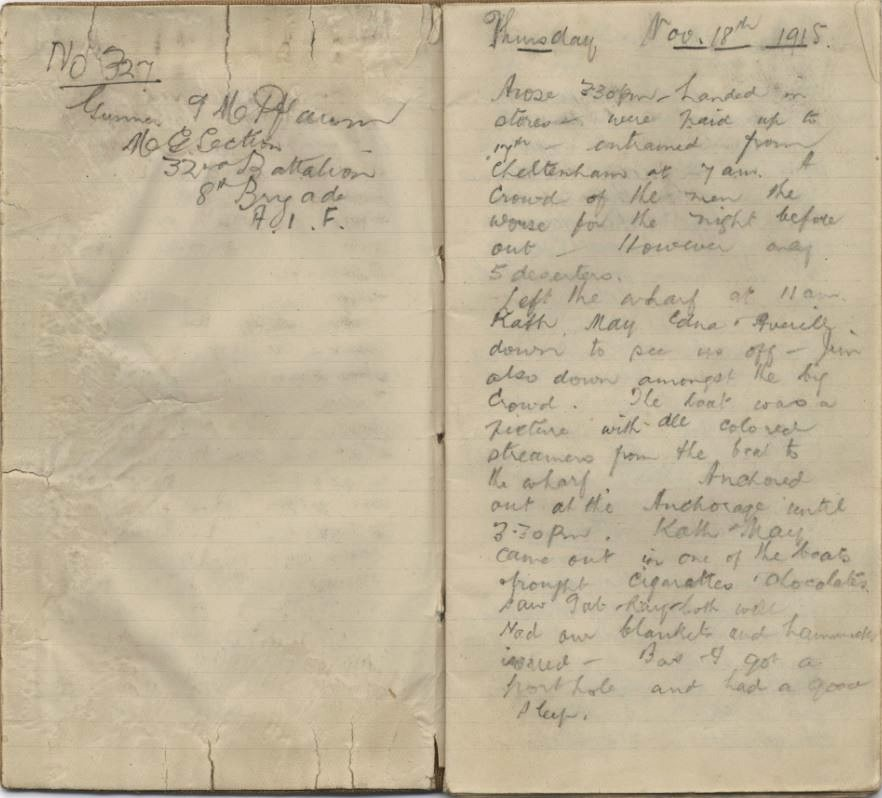 No 327
Gunner J M Pflaum
M G Section
32nd Battalion
8th Brigade
A. I. F.
Thursday Nov. 18th 1915.
Arose 330pm - handed in
stores - were paid up to
17th - entrained from
Cheltenham at 7 am. A
Crowd of the men the
worse for the night before
out - However only
5 deserters.
Left the wharf at 11 am.
Kath, May Edna &
down to see us off - Jim
also down amongst the big
Crowd. The boat was a
picture with all colored
streamers from the boat to
the wharf. Anchored
out at the Anchorage until
3.30 pm. Kath & May
came out in one of the boats
& brought cigarettes & chocolates
saw & Ray both well
Had our blankets and hammocks
issued - & I got a
port hole and had a good
sleep.